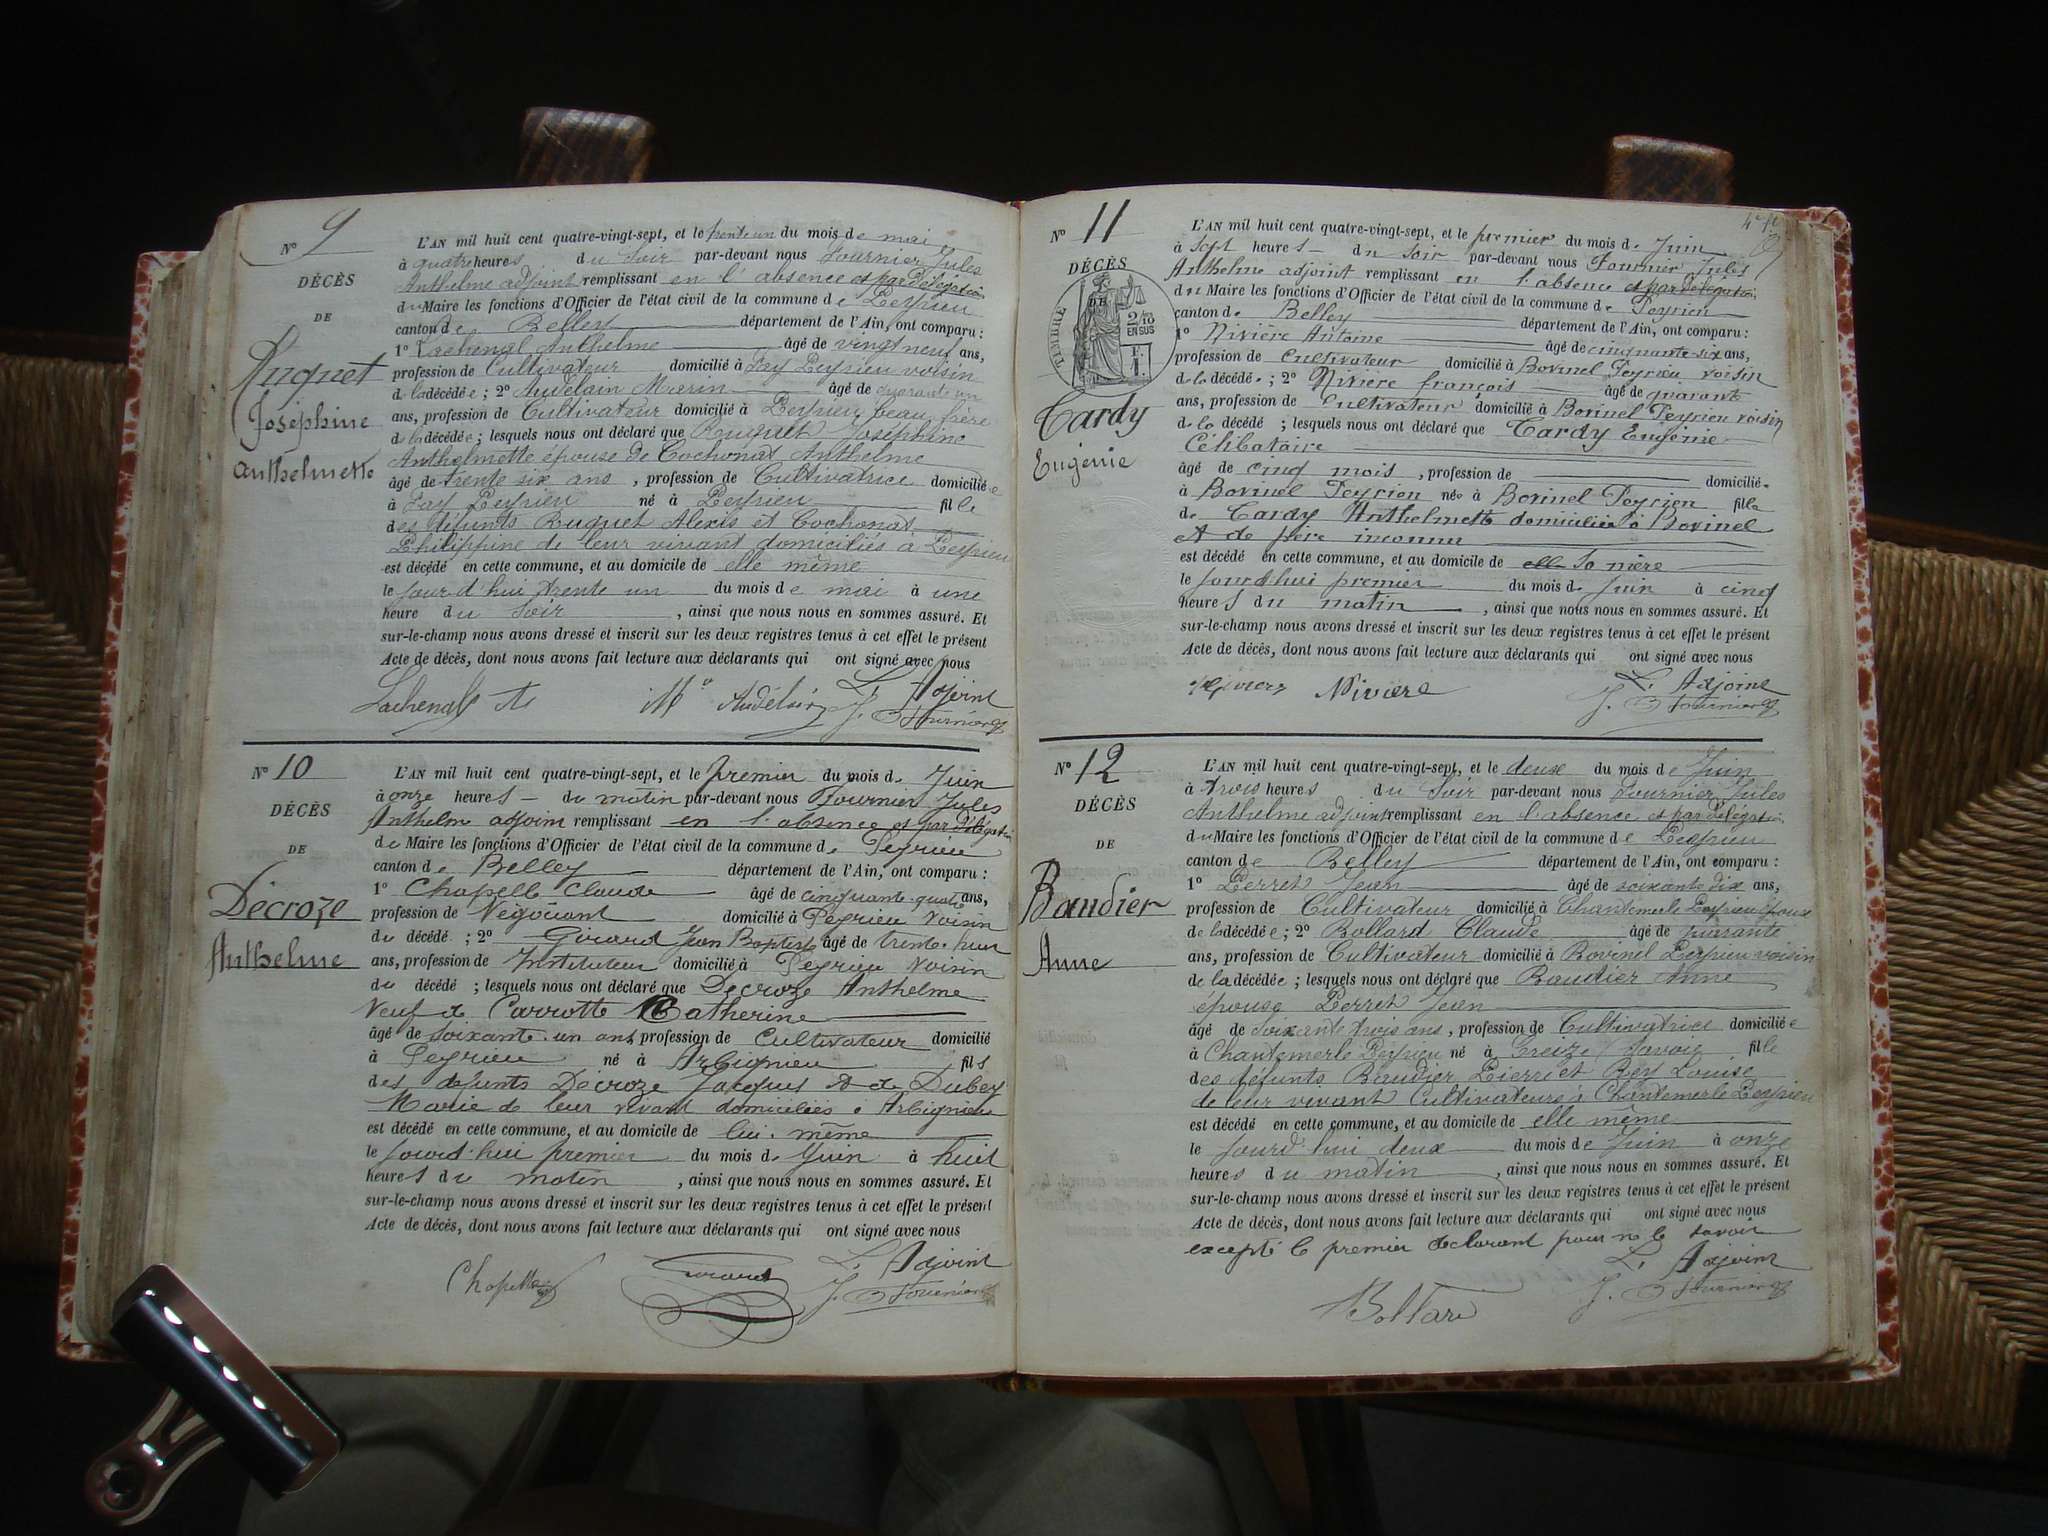 N° 9
DÉCÈS
DE
Ruquet
Joséphine
Anthelmette
L'AN mil huit cent quatre-vingt-sept, et le trente un du mois de mai
à quatre heures du soir par-devant nous Fournier Jules
Anthelme adjoint remplissant en l'absence et par délégation
du Maire les fonctions d'Officier de l'état civil de la commune de Peyrieu
canton de Belley département de l'Ain, ont comparu :
1° Lachenal Anthelme âgé de vingt neuf ans,
profession de Cultivateur domicilié à Fay Peyrieu voisin
de la décédée ; 2° Audelain Marin âgé de quarante un
ans, profession de Cultivateur domicilié à Peyrieu beau frère
de la décédée ; lesquels nous ont déclaré que Ruquet Joséphine
Anthelmette épouse de Cochonat Anthelme
âgé de trente six ans , profession de Cultivatrice domiciliée
à Fay Peyrieu né à Peyrieu fille
des défunts Ruquet Alexis et Cochonat
Philippine de leur vivant domiciliés à Peyrieu
est décédé en cette commune, et au domicile de elle même
le jour d'hui trente un du mois de mai à une
heure du soir , ainsi que nous nous en sommes assuré. Et
sur-le-champ nous avons dressé et inscrit sur les deux registres tenus à cet effet le présent
Acte de décès, dont nous avons fait lecture aux déclarants qui ont signé avec nous
L'Adjoint
Lachenal A Audelain J. Fournier
N° 10
DÉCÈS
DE
Décroze
Anthelme
L'AN mil huit cent quatre-vingt-sept, et le premier du mois de Juin
à onze heures du matin par-devant nous Fournier Jules
Anthelme adjoint remplissant en l'absence et par délégation
du Maire les fonctions d'Officier de l'état civil de la commune de Peyrieu
canton de Belley département de l'Ain, ont comparu :
1° Chapelle Claude âgé de cinquante quatre ans,
profession de Négociant domicilié à Peyrieu voisin
du décédé ; 2° Girard Jean Baptiste âgé de trente huit
ans, profession de Instituteur domicilié à Peyrieu voisin
du décédé ; lesquels nous ont déclaré que Décroze Anthelme
Veuf de Carrotte Catherine
âgé de soixante un ans profession de Cultivateur domicilié
à Peyrieu né à Arbignieu fils
des défunts Décroze Jacques et de Dubey
Marie de leur vivant domiciliés à Arbignieu
est décédé en cette commune, et au domicile de lui même
le jourd'hui premier du mois de Juin à huit
heures du matin , ainsi que nous nous en sommes assuré. Et
sur-le-champ nous avons dressé et inscrit sur les deux registres tenus à cet effet le présent
Acte de décès, dont nous avons fait lecture aux déclarants qui ont signé avec nous
L'Adjoint
Chapelle Girard J. Fournier
N° 11
DÉCÈS
DE
TIMBRE
2/10
EN SUS
F.
1.
Tardy
Eugénie
L'AN mil huit cent quatre-vingt-sept, et le premier du mois de Juin
à sept heures du soir par-devant nous Fournier Jules
Anthelme adjoint remplissant en l'absence et par délégation
du Maire les fonctions d'Officier de l'état civil de la commune de Peyrieu
canton de Belley département de l'Ain, ont comparu :
1° Nivière Antoine âgé de cinquante six ans,
profession de Cultivateur domicilié à Bovinel Peyrieu voisin
de la décédé ; 2° Nivière françois âgé de quarante
ans, profession de Cultivateur domicilié à Bovinel Peyrieu voisin
de la décédé ; lesquels nous ont déclaré que Tardy Eugénie
Célibataire
âgé de cinq mois , profession de domiciliée
à Bovinel Peyrieu née à Bovinel Peyrieu fille
de Tardy Anthelmette domiciliée à Bovinel
et de père inconnu
est décédé en cette commune, et au domicile de elle sa mère
le jourd'hui premier du mois de Juin à cinq
heures du matin , ainsi que nous nous en sommes assuré. Et
sur-le-champ nous avons dressé et inscrit sur les deux registres tenus à cet effet le présent
Acte de décès, dont nous avons fait lecture aux déclarants qui ont signé avec nous
L'Adjoint
Nivière J. Fournier
N° 12
DÉCÈS
DE
Baudier
Anne
L'AN mil huit cent quatre-vingt-sept, et le deux du mois de Juin
à trois heures du soir par-devant nous Fournier Jules
Anthelme adjoint remplissant en l'absence et par délégation
du Maire les fonctions d'Officier de l'état civil de la commune de Peyrieu
canton de Belley département de l'Ain, ont comparu :
1° Perret Jean âgé de soixante dix ans,
profession de Cultivateur domicilié à Chantemerle Peyrieu époux
de la décédée ; 2° Bollard Claude âgé de quarante
ans, profession de Cultivateur domicilié à Bovinel Peyrieu voisin
de la décédée ; lesquels nous ont déclaré que Baudier Anne
épouse Perret Jean
âgé de soixante trois ans , profession de Cultivatrice domiciliée
à Chantemerle Peyrieu né à Traize Savoie fille
des défunts Baudier Pierre et Rey Louise
de leur vivant Cultivateurs à Chantemerle Peyrieu
est décédé en cette commune, et au domicile de elle même
le jourd'hui deux du mois de Juin à onze
heures du matin , ainsi que nous nous en sommes assuré. Et
sur-le-champ nous avons dressé et inscrit sur les deux registres tenus à cet effet le présent
Acte de décès, dont nous avons fait lecture aux déclarants qui ont signé avec nous
excepté le premier déclarant pour ne le savoir
L'Adjoint
Bollard J. Fournier